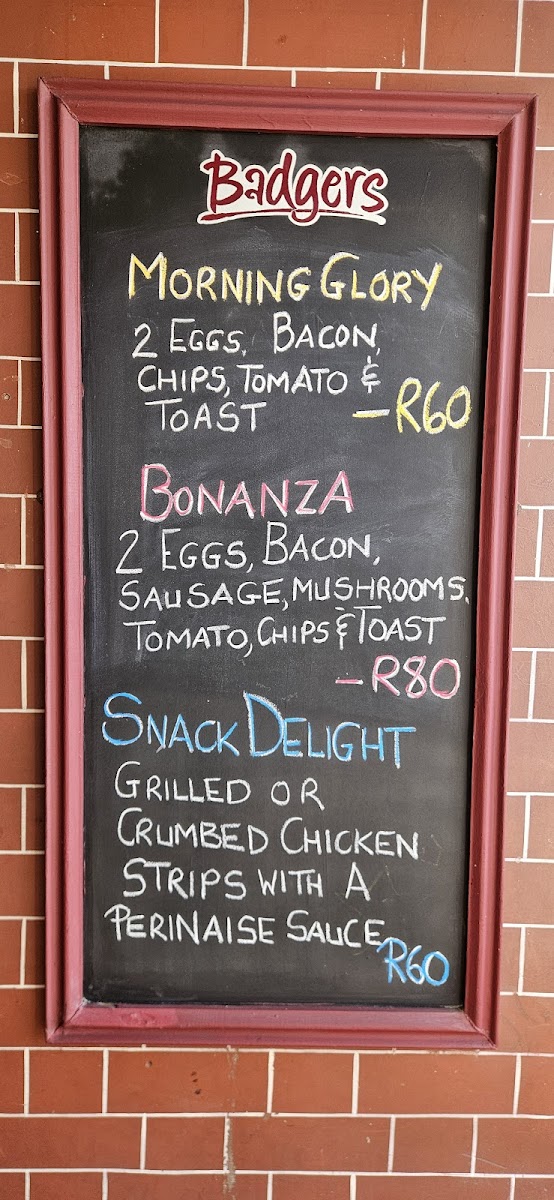 Badgers
MORNING GLORY
2 EGGS, BACON,
CHIPS, TOMATO &
TOAST – R60
BONANZA
2 EGGS, BACON,
SAUSAGE, MUSHROOMS,
TOMATO, CHIPS & TOAST
– R80
SNACK DELIGHT
GRILLED OR
CRUMBED CHICKEN
STRIPS WITH A
PERINAISE SAUCE
R60